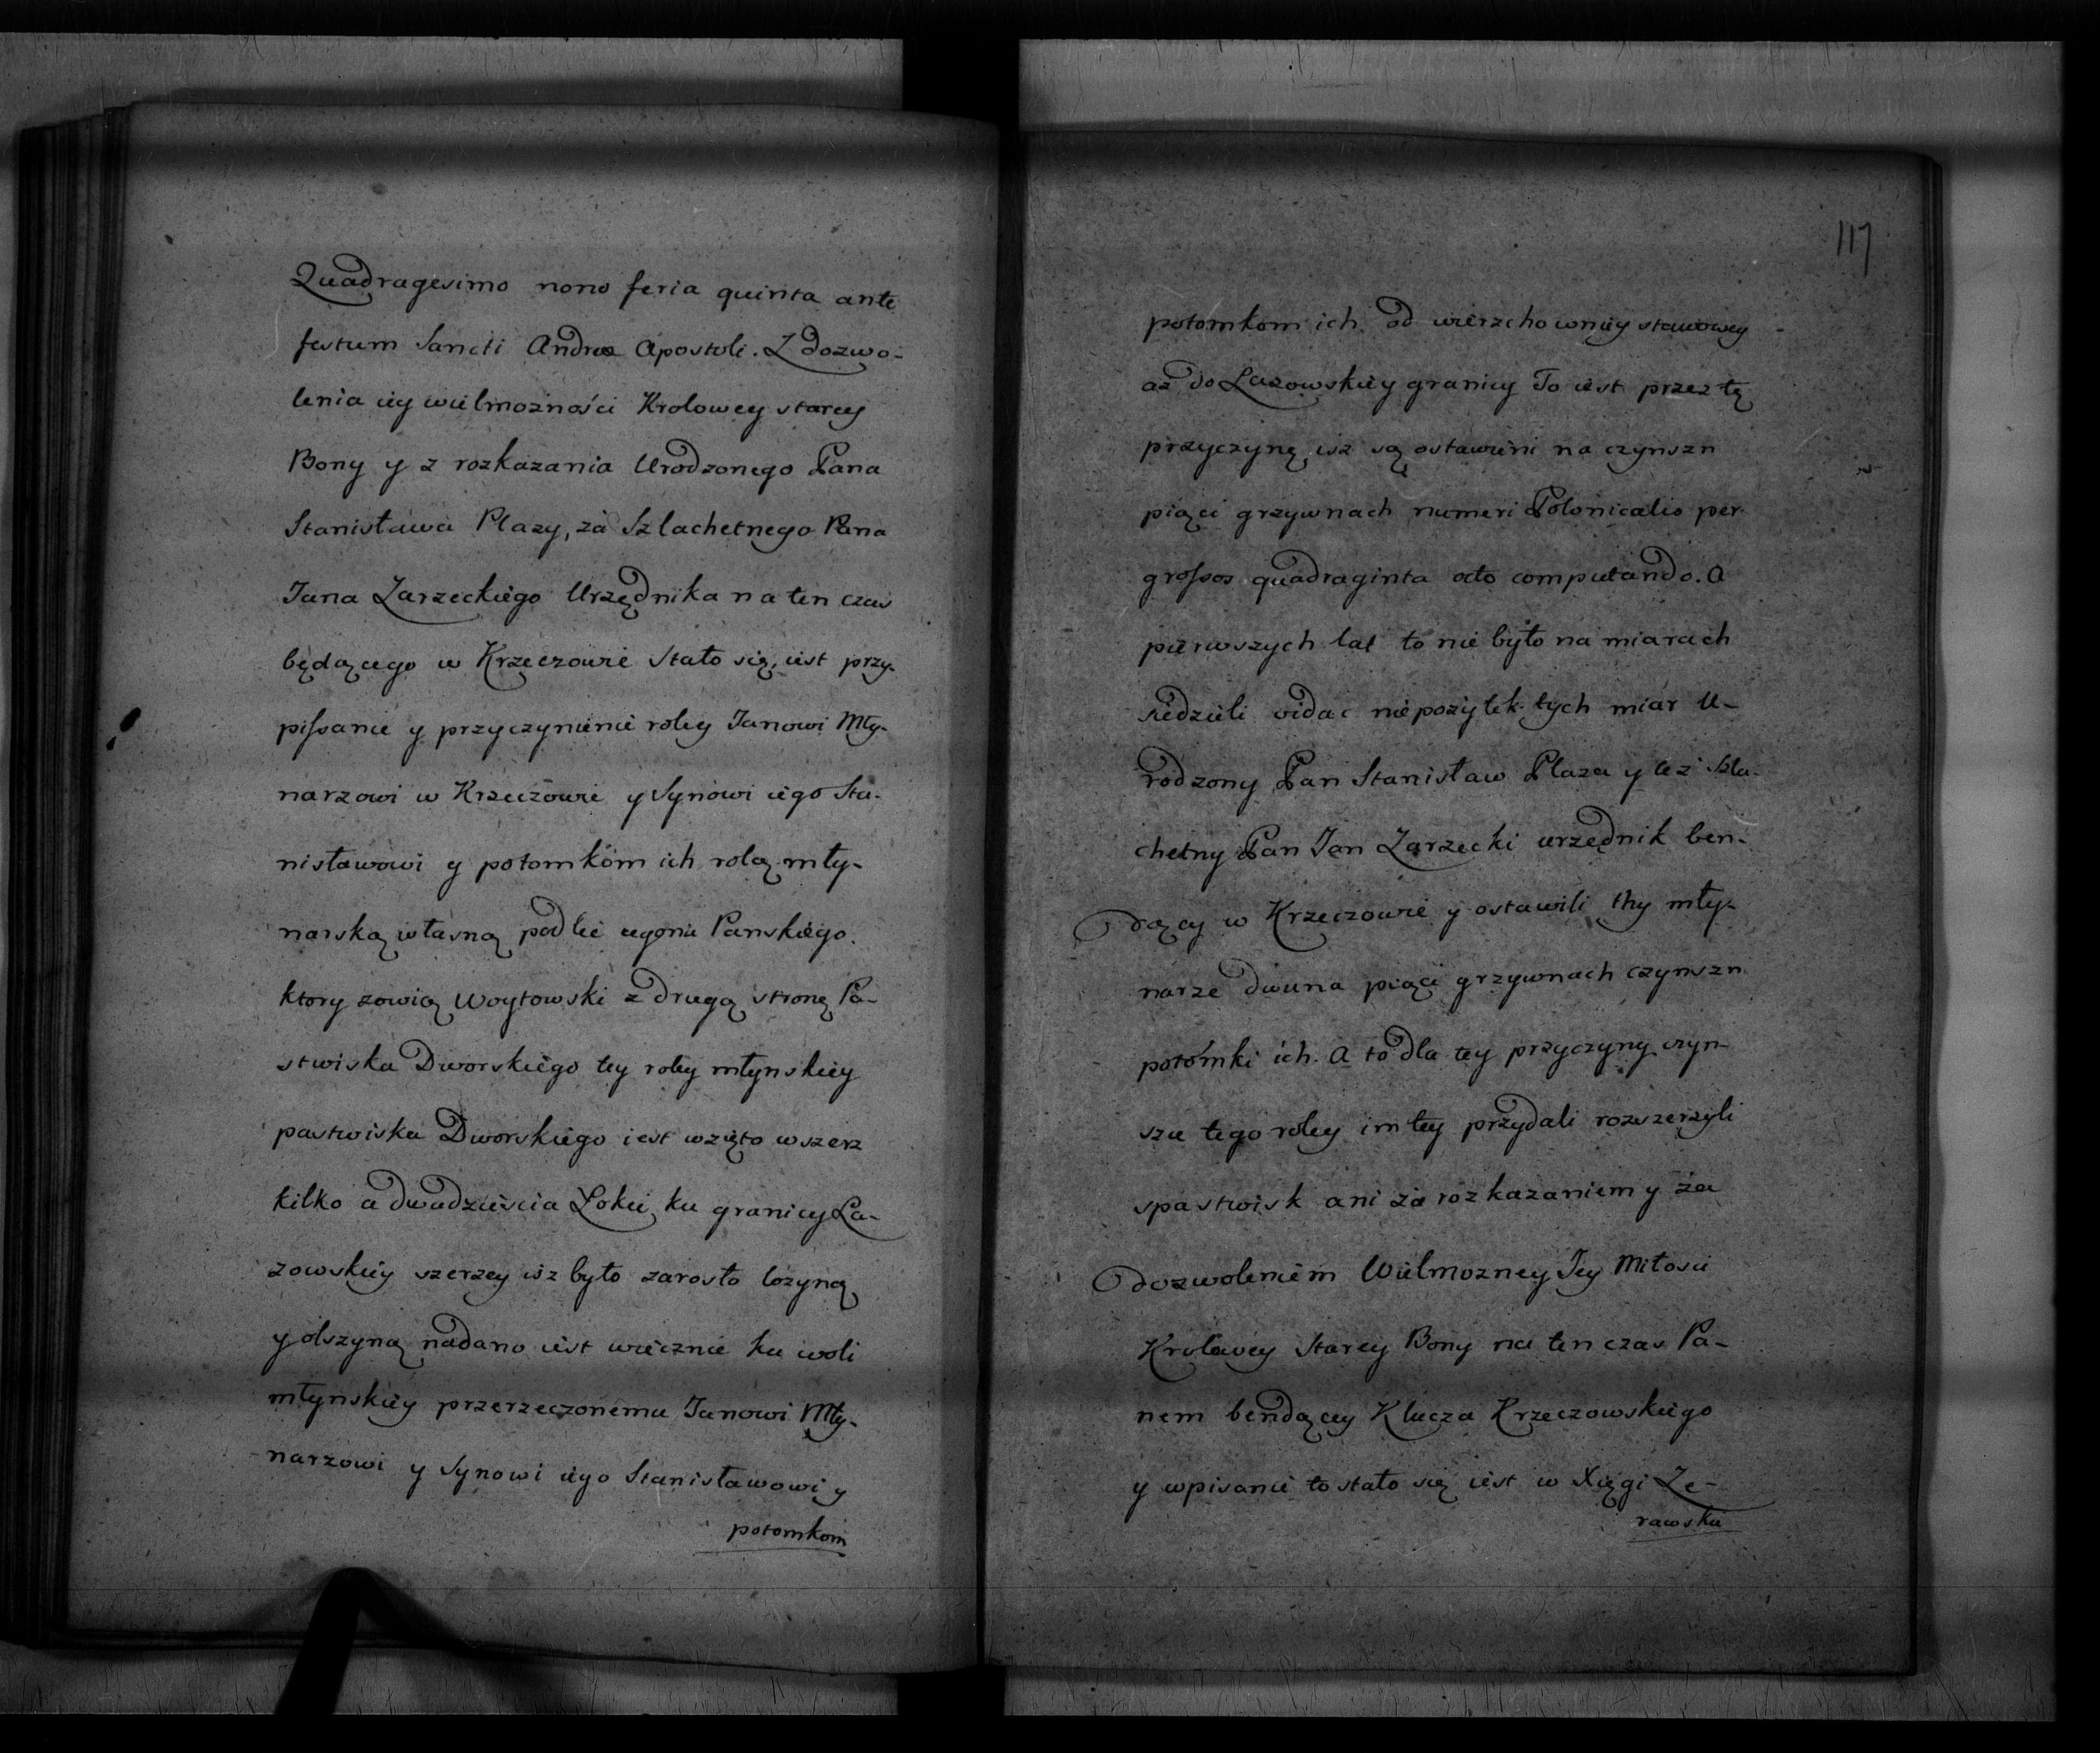 Quadragesimo nono feria quinta ante
festum Sancti Andreæ Apostoli. Z dozwo-
lenia iey wielmożności Krolowey starey
Bony y z rozkazania Urodzonego Pana
Stanisława Plazy, za Szlachetnego Pana
Jana Zarzeckiego Urzędnika na ten czas
będącego w Krzeczowie Stało się iest przy-
pissanie y przyczynienie roley Janowi Mły-
narzowi w Krzeczowie y Synowi iego Sta-
nisławowi y potomkom ich rolą mły-
narską własną podle ugoru Panskiego.
ktory zowią Woytowski z drugą stronę Pa-
stwiska Dworskiego tey roley młynskiey
pastwiska Dworskiego iest wzięto wszerz
kilko a dwadzieścia Łokci ku granicy Ła-
zowskiey szerzey isz było zarosło lozyną
y olszyną nadano iest wiecznie ku woli
młynskiey przerzeczonemu Janowi Mły-
narzowi y Synowi iego Stanisławowi y
potomkom
117
potomkom ich od wierzchowniey stawowey
aż do Łazowskiey granicy To iest przez tę
przyczynę isz są ostawieni na czynszu
piąci grzywnach numeri Polonicalis per
grossos quadraginta octo computando. A
pierwszych lat to nie było na miarach
siedzieli widac niepożytek tych miar U-
rodzony Pan Stanisław Plaza y też Szla-
chetny Pan Jan Zarzecki urzędnik ben-
dący w Krzeczowie y ostawili thy mły-
narze dwuna piąci grzywnach czynszu
potomki ich. A to dla tey przyczyny czyn-
szu tego roley im tey przydali rozszerzyli
spastwisk ani za rozkazaniem y za
dozwoleniem Wielmozney Jey Miłosci
Krolowey Starey Bony na ten czas Pa-
nem bendącey Klucza Krzeczowskiego
y wpisanie to stało się iest w Xięgi Że-
rawskie